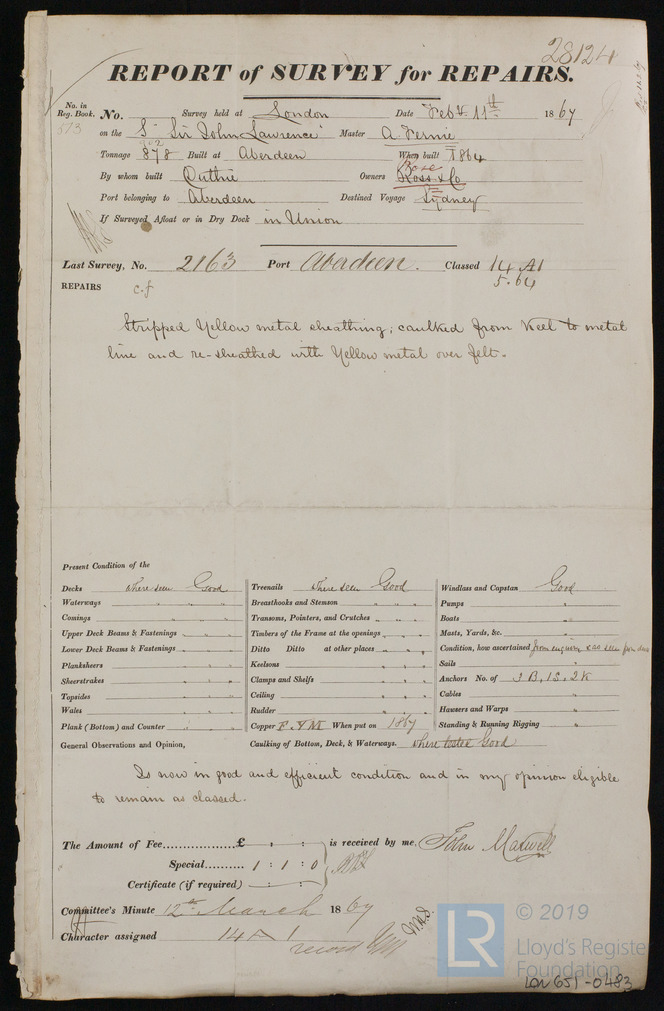 28124
REPORT of SURVEY for REPAIRS.
No. in Reg. Book. No. Survey held at London Date Feby 11th 1867
573 on the S "Sir John Lawrence" Master A. Fernie
702
Tonnage 878 Built at Aberdeen When built 1864
By whom built Duthie Owners Ross & Co
Port belonging to Aberdeen Destined Voyage Sydney
If Surveyed Afloat or in Dry Dock in Union
Last Survey, No. 2163 Port Aberdeen. Classed 14 A1
5.64
REPAIRS c.f
Stripped Yellow metal sheathing; caulked from Keel to metal
line and re-sheathed with Yellow metal over felt.
Present Condition of the
Decks where seen Good
Waterways " " "
Comings " " "
Upper Deck Beams & Fastenings " " "
Lower Deck Beams & Fastenings " " "
Planksheers " " "
Sheerstrakes " " "
Topsides " " "
Wales " " "
Plank (Bottom) and Counter " "
General Observations and Opinion,
Treenails where seen Good
Breasthooks and Stemson " " "
Transoms, Pointers, and Crutches " " "
Timbers of the Frame at the openings " " "
Ditto Ditto at other places " " "
Keelsons " " "
Clamps and Shelfs " " "
Ceiling " " "
Rudder " " "
Copper F. YM When put on 1867
Caulking of Bottom, Deck, & Waterways. where tested Good
Windlass and Capstan Good
Pumps "
Boats "
Masts, Yards, &c. "
Condition, how ascertained from enquiry & as seen from deck
Sails "
Anchors No. of 3 B, 1S, 2K
Cables "
Hawsers and Warps "
Standing & Running Rigging "
Is now in good and efficient condition and in my opinion eligible
to remain as classed.
The Amount of Fee £ : : is received by me, John Maxwell
Special 1 : 1 : 0
Certificate (if required) : :
Committee's Minute 12th March 1867
Character assigned 14 A 1
record
© 2019
LR
Lloyd's Register
Foundation
LON 651-0483